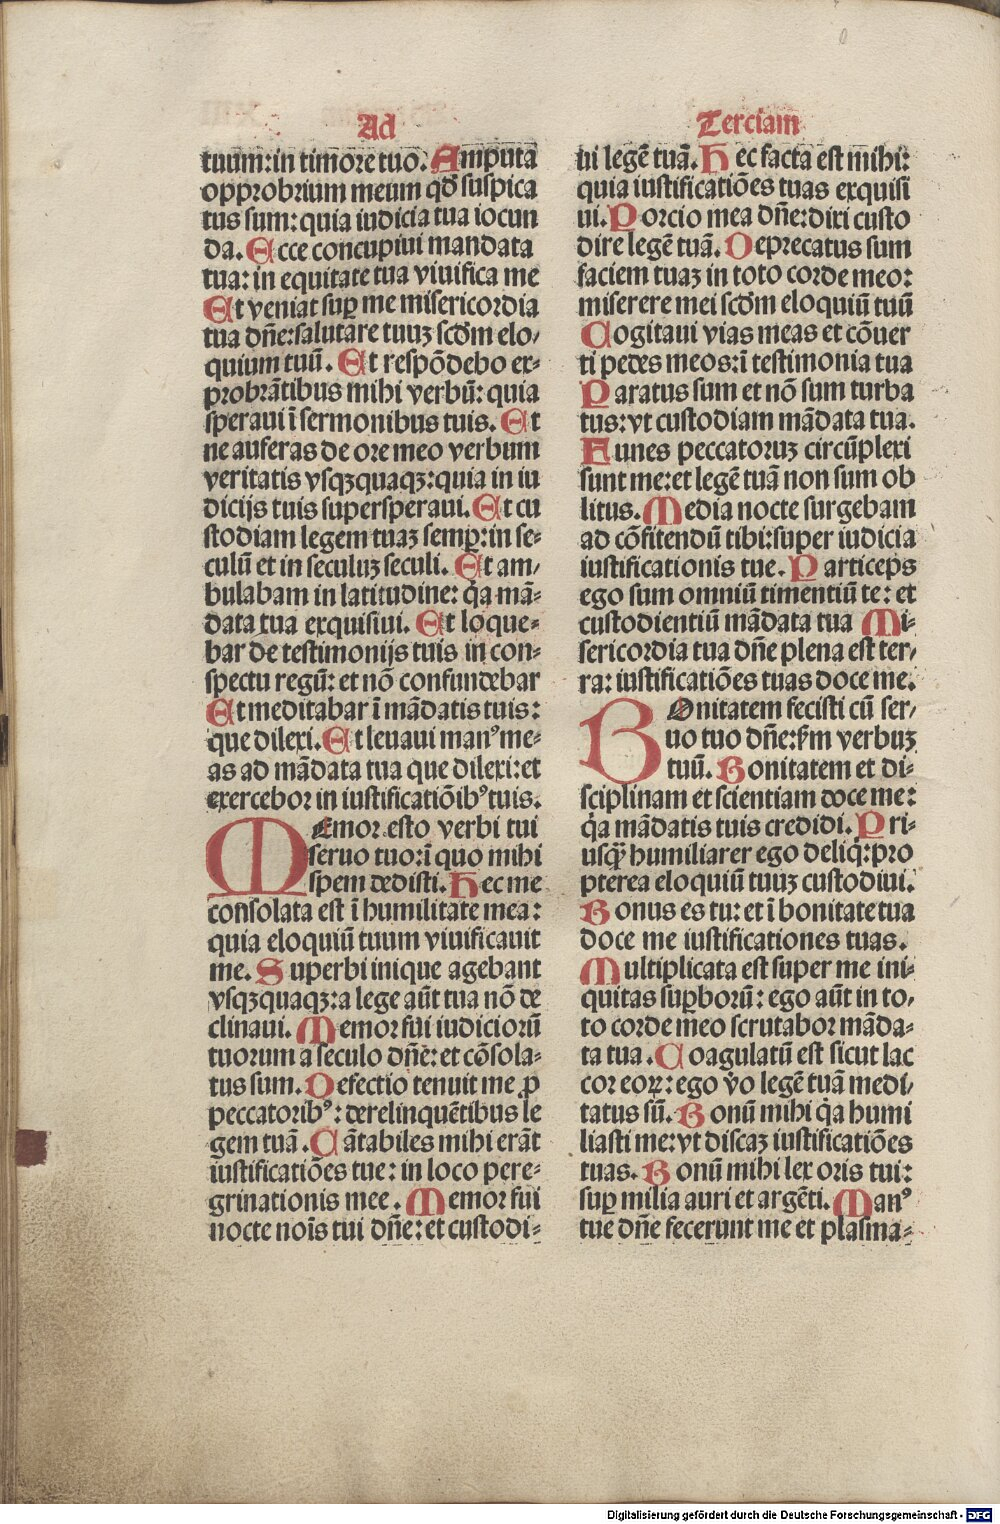 Ad
tuum: in timore tuo. Amputa
opprobrium meum qđ suspica
tus sum: quia iudicia tua iocun
da. Ecce concupiui mandata
tua: in equitate tua viuifica me
Et veniat suꝑ me misericordia
tua dñe: salutare tuuꝫ scďm elo⸗
quium tuū. Et respōdebo ex⸗
probrātibus mihi verbū: quia
speraui ī sermonibus tuis. Et
ne auferas de ore meo verbum
veritatis vsqꝫquaqꝫ: quia in iu
dicijs tuis supersperaui. Et cu
stodiam legem tuaꝫ semꝑ: in se⸗
culū et in seculuꝫ seculi. Et am⸗
bulabam in latitudine: q̇a mā⸗
data tua exquisiui. Et loque⸗
bar de testimonijs tuis in con⸗
spectu regū: et nō confundebar
Et meditabar ī mādatis tuis:
que dilexi. Et leuaui manꝰ me⸗
as ad mādata tua que dilexi: et
exercebor in iustificatiōibꝰ tuis.
MEmor esto verbi tui
seruo tuo: ī quo mihi
spem dedisti. Hec me
consolata est ī humilitate mea:
quia eloquiū tuum viuificauit
me. Superbi inique agebant
vsqꝫquaqꝫ: a lege aūt tua nō de
clinaui. Memor fui iudiciorū
tuorum a seculo dñe: et cōsola⸗
tus sum. Defectio tenuit me ꝓ
peccatoribꝰ: derelinquētibus le
gem tuā. Cātabiles mihi erāt
iustificatiōes tue: in loco pere⸗
grinationis mee. Memor fui
nocte noīs tui dñe: et custodi⸗
Terciam
ui legē tuā. Hec facta est mihi:
quia iustificatiōes tuas exquisi
ui. Porcio mea dñe: dixi custo
dire legē tuā. Deprecatus sum
faciem tuaꝫ in toto corde meo:
miserere mei scďm eloquiū tuū
Cogitaui vias meas et cōuer
ti pedes meos: ī testimonia tua
Paratus sum et nō sum turba
tus: vt custodiam mādata tua.
Funes peccatoruꝫ circūplexi
sunt me: et legē tuā non sum ob
litus. Media nocte surgebam
ad cōfitendū tibi: super iudicia
iustificationis tue. Particeps
ego sum omniū timentiū te: et
custodientiū mādata tua Mi⸗
sericordia tua dñe plena est ter⸗
ra: iustificatiōes tuas doce me.
BOnitatem fecisti cū ser⸗
uo tuo dñe: ẜm verbuꝫ
tuū. Bonitatem et di⸗
sciplinam et scientiam doce me:
q̇a mādatis tuis credidi. Pri⸗
usq̄ꝫ humiliarer ego deliq̇: pro
pterea eloquiū tuuꝫ custodiui.
Bonus es tu: et ī bonitate tua
doce me iustificationes tuas.
Multiplicata est super me ini⸗
quitas suꝑborū: ego aūt in to⸗
to corde meo scrutabor māda⸗
ta tua. Coagulatū est sicut lac
cor eoꝝ: ego v̇o legē tuā medi⸗
tatus sū. Bonū mihi q̇a humi
liasti me: vt discaꝫ iustificatiōes
tuas. Bonū mihi lex oris tui:
suꝑ milia auri et argēti. Manꝰ
tue dñe fecerunt me et plasma⸗
Digitalisierung gefördert durch die Deutsche Forschungsgemeinschaft - DFG